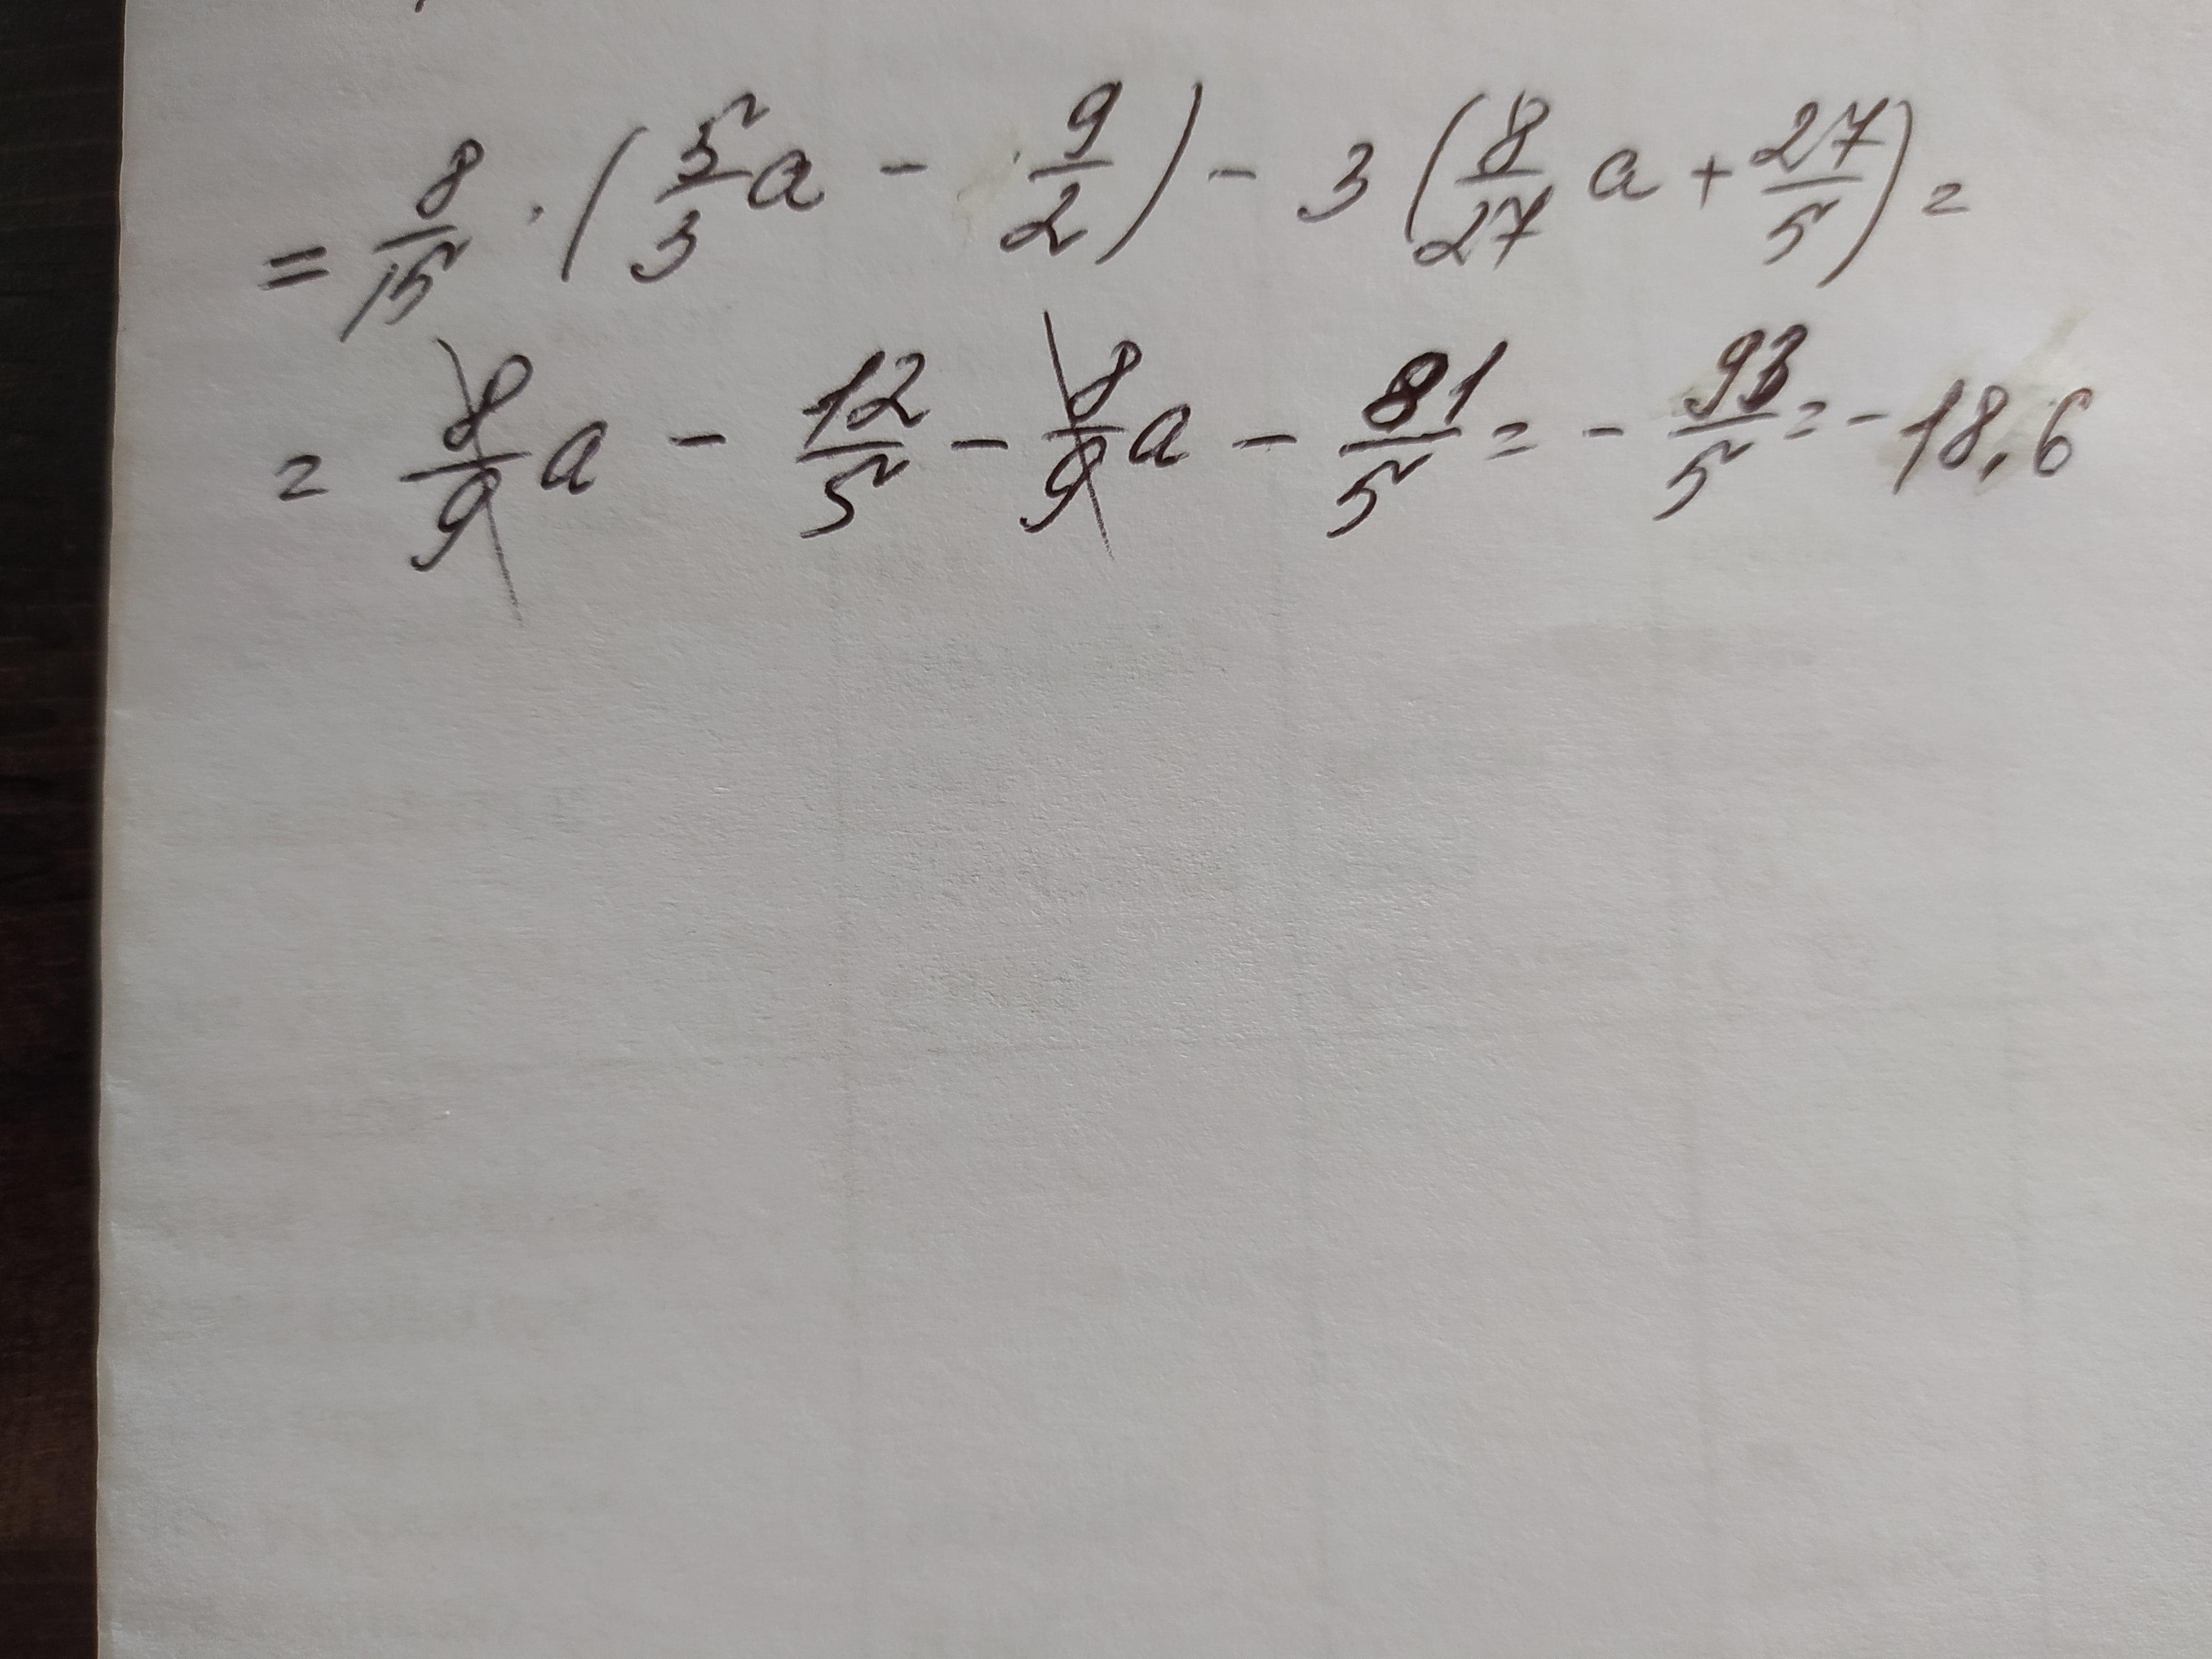 = 8/15 · (5/3 a - 9/2) - 3 (8/27 a + 27/5) =
= 8/9 a - 12/5 - 8/9 a - 81/5 = - 93/5 = - 18,6